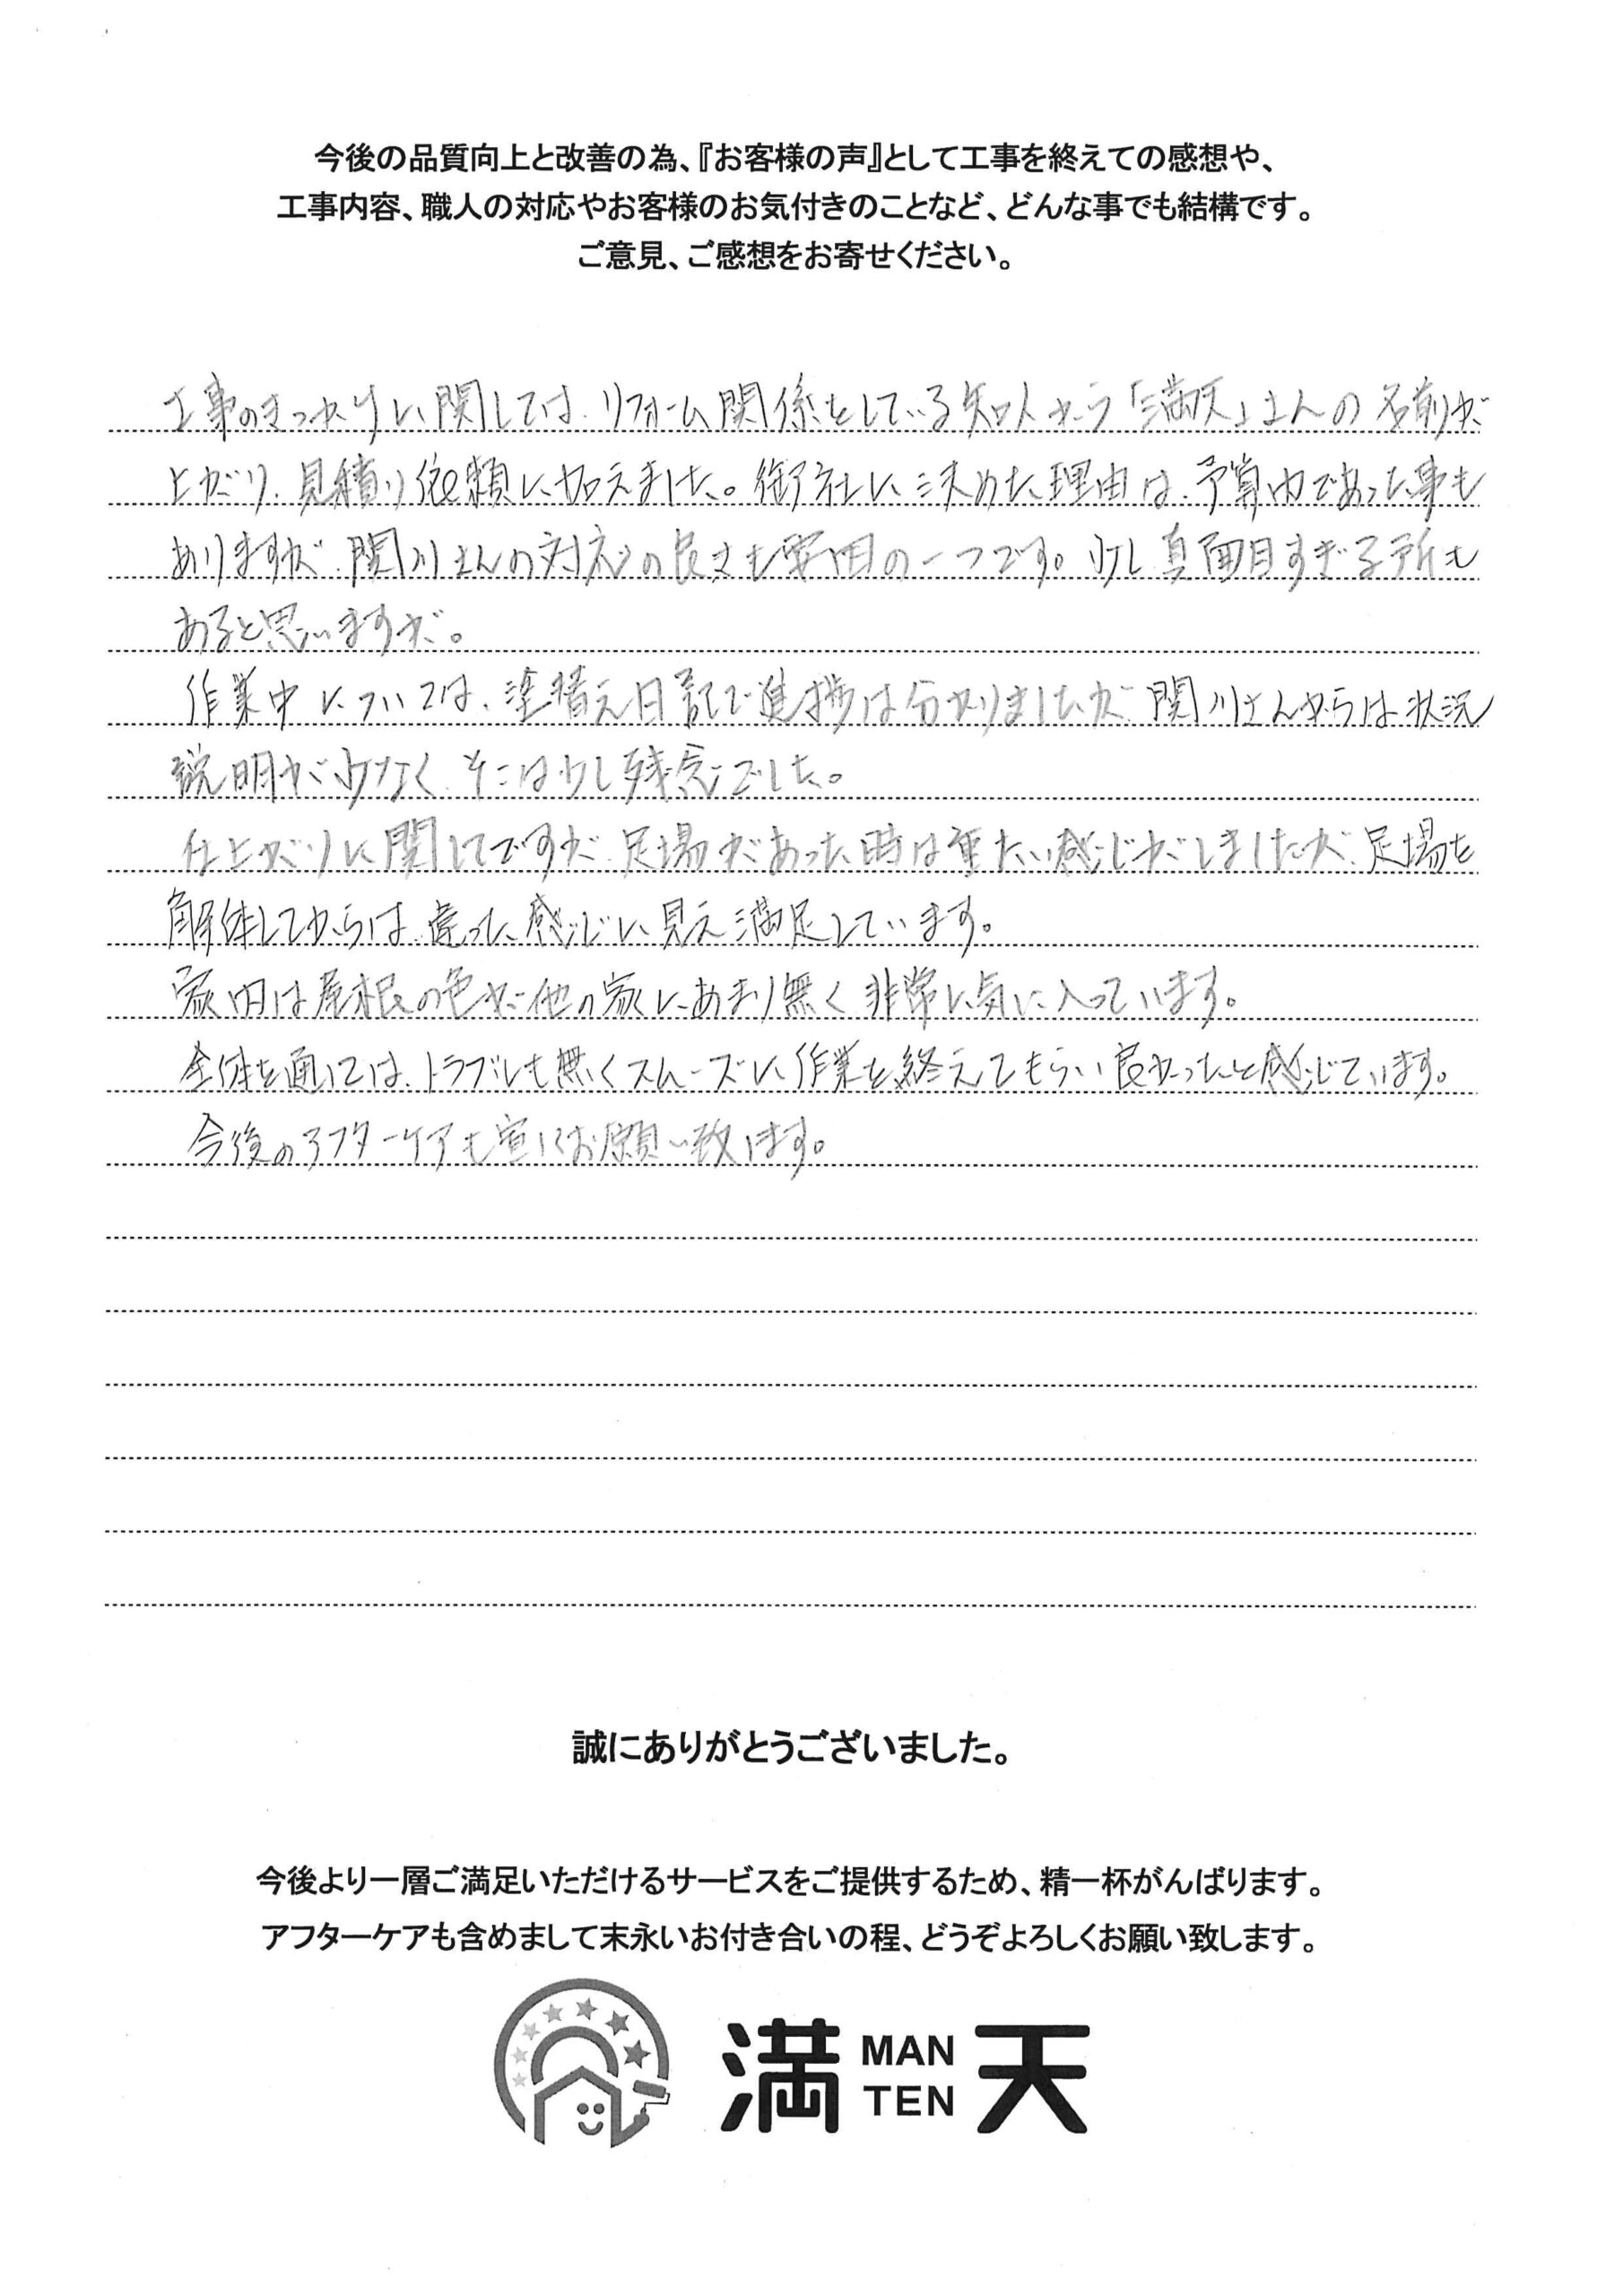 今後の品質向上と改善の為、『お客様の声』として工事を終えての感想や、
工事内容、職人の対応やお客様のお気付きのことなど、どんな事でも結構です。
ご意見、ご感想をお寄せください。
工事のきっかけに関しては、リフォーム関係をしている知人から「満天」さんの名前が
上がり、見積り依頼に加えました。御社に決めた理由は、予算内であった事も
ありますが、関川さんの対応の良さも要因の一つです。少し真面目すぎる所も
あると思いますが。
作業中については、塗替え日記で進捗は分かりましたが、関川さんからは状況
説明が少なく、そこは少し残念でした。
仕上がりに関してですが、足場があった時は重たい感じがしましたが、足場を
解体してからは、違った感じに見え満足しています。
家内は屋根の色が他の家にあまり無く非常に気に入っています。
全体を通しては、トラブルも無くスムーズに作業を終えてもらい良かったと感じています。
今後のアフターケアも宜しくお願い致します。
誠にありがとうございました。
今後より一層ご満足いただけるサービスをご提供するため、精一杯がんばります。
アフターケアも含めまして末永いお付き合いの程、どうぞよろしくお願い致します。
満 MAN TEN 天